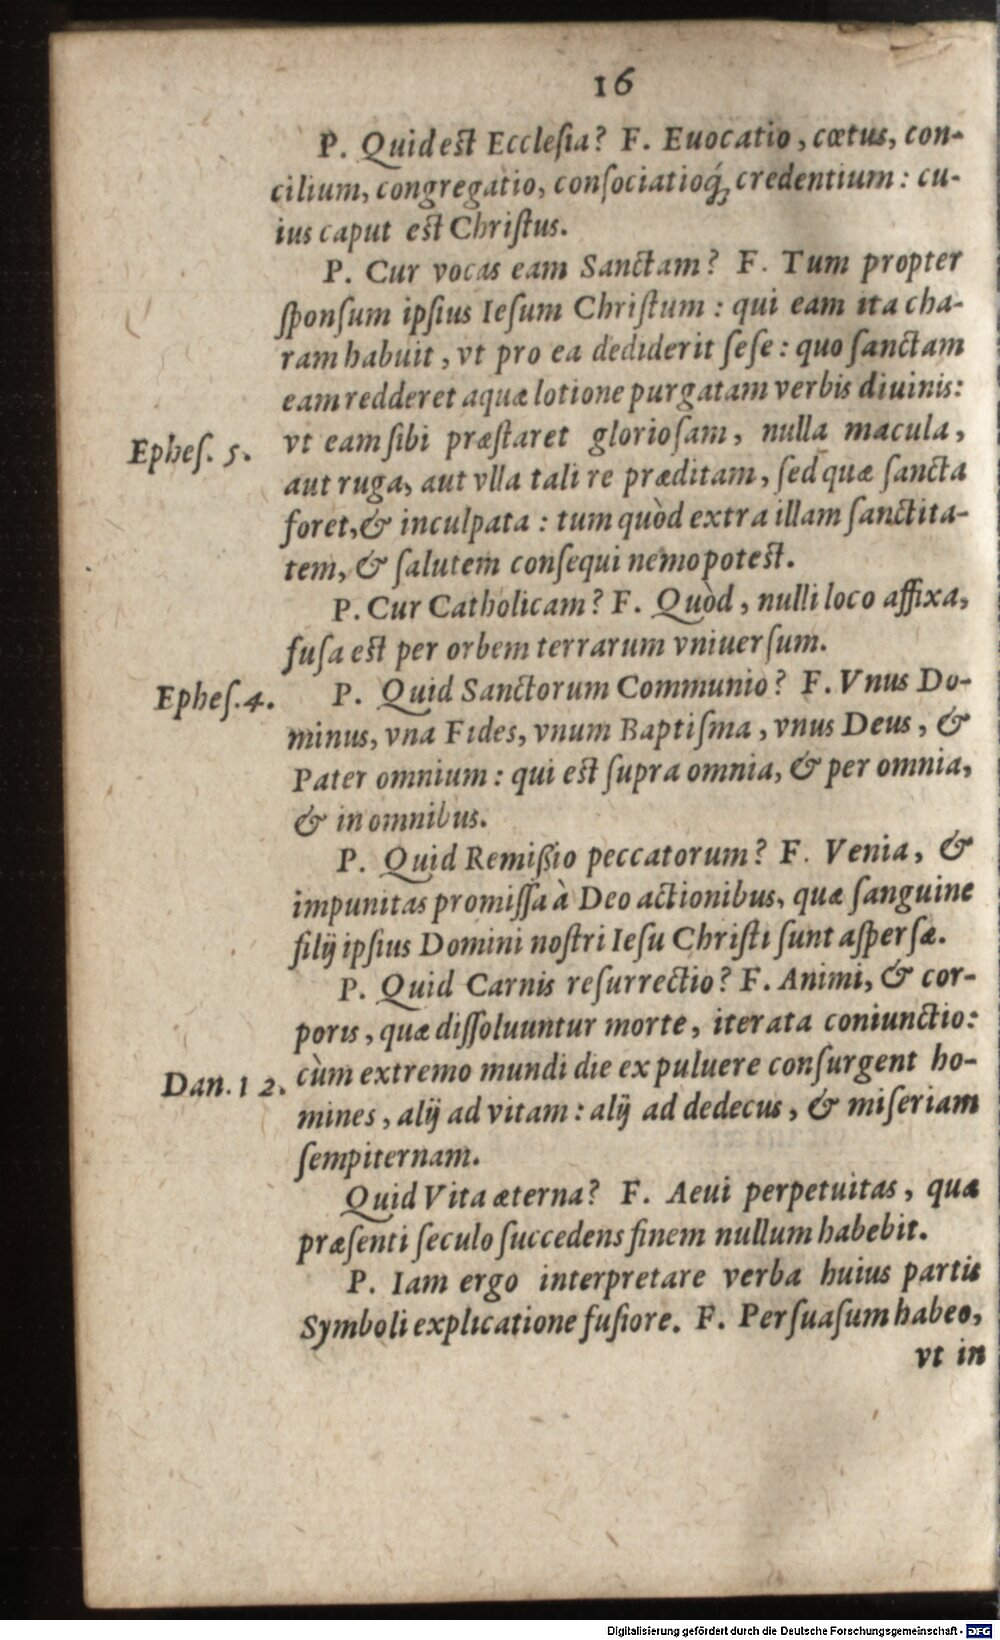 16
P. Quid est Ecclesia? F. Euocatio, cœtus, con-
cilium, congregatio, consociatioq́;, credentium: cu-
ius caput est Christus.
P. Cur vocas eam Sanctam? F. Tum propter
sponsum ipsius Iesum Christum: qui eam ita cha-
ram habuit, vt pro ea dediderit sese: quo sanctam
eam redderet aquæ lotione purgatam verbis diuinis:
Ephes. 5. vt eam sibi præstaret gloriosam, nulla macula,
aut ruga, aut vlla tali re præditam, sed quæ sancta
foret, & inculpata: tum quòd extra illam sanctita-
tem, & salutem consequi nemo potest.
P. Cur Catholicam? F. Quòd, nulli loco affixa,
fusa est per orbem terrarum vniuersum.
Ephes. 4. P. Quid Sanctorum Communio? F. Vnus Do-
minus, vna Fides, vnum Baptisma, vnus Deus, &
Pater omnium: qui est supra omnia, & per omnia,
& in omnibus.
P. Quid Remißio peccatorum? F. Venia, &
impunitas promissa à Deo actionibus, quæ sanguine
filij ipsius Domini nostri Iesu Christi sunt aspersæ.
P. Quid Carnis resurrectio? F. Animi, & cor-
poris, quæ dissoluuntur morte, iterata coniunctio:
Dan. 12. cùm extremo mundi die ex puluere consurgent ho-
mines, alij ad vitam: alij ad dedecus, & miseriam
sempiternam.
Quid Vita æterna? F. Aeui perpetuitas, quæ
præsenti seculo succedens finem nullum habebit.
P. Iam ergo interpretare verba huius partis
Symboli explicatione fusiore. F. Persuasum habeo,
vt in
Digitalisierung gefördert durch die Deutsche Forschungsgemeinschaft - DFG